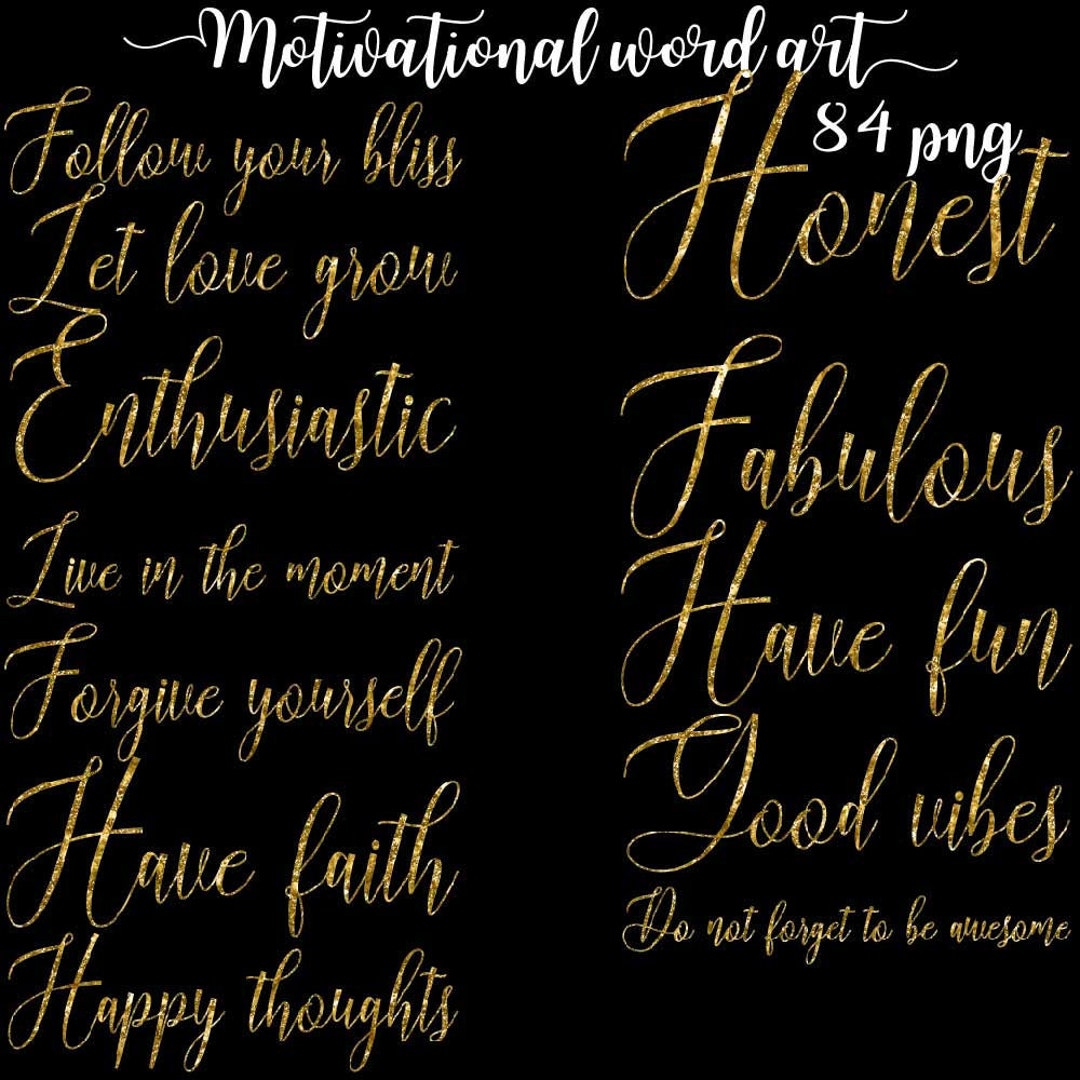 Motivational word art
84 png
Follow your bliss
Let love grow
Enthusiastic
Live in the moment
Forgive yourself
Have faith
Happy thoughts
Honest
Fabulous
Have fun
Good vibes
Do not forget to be awesome